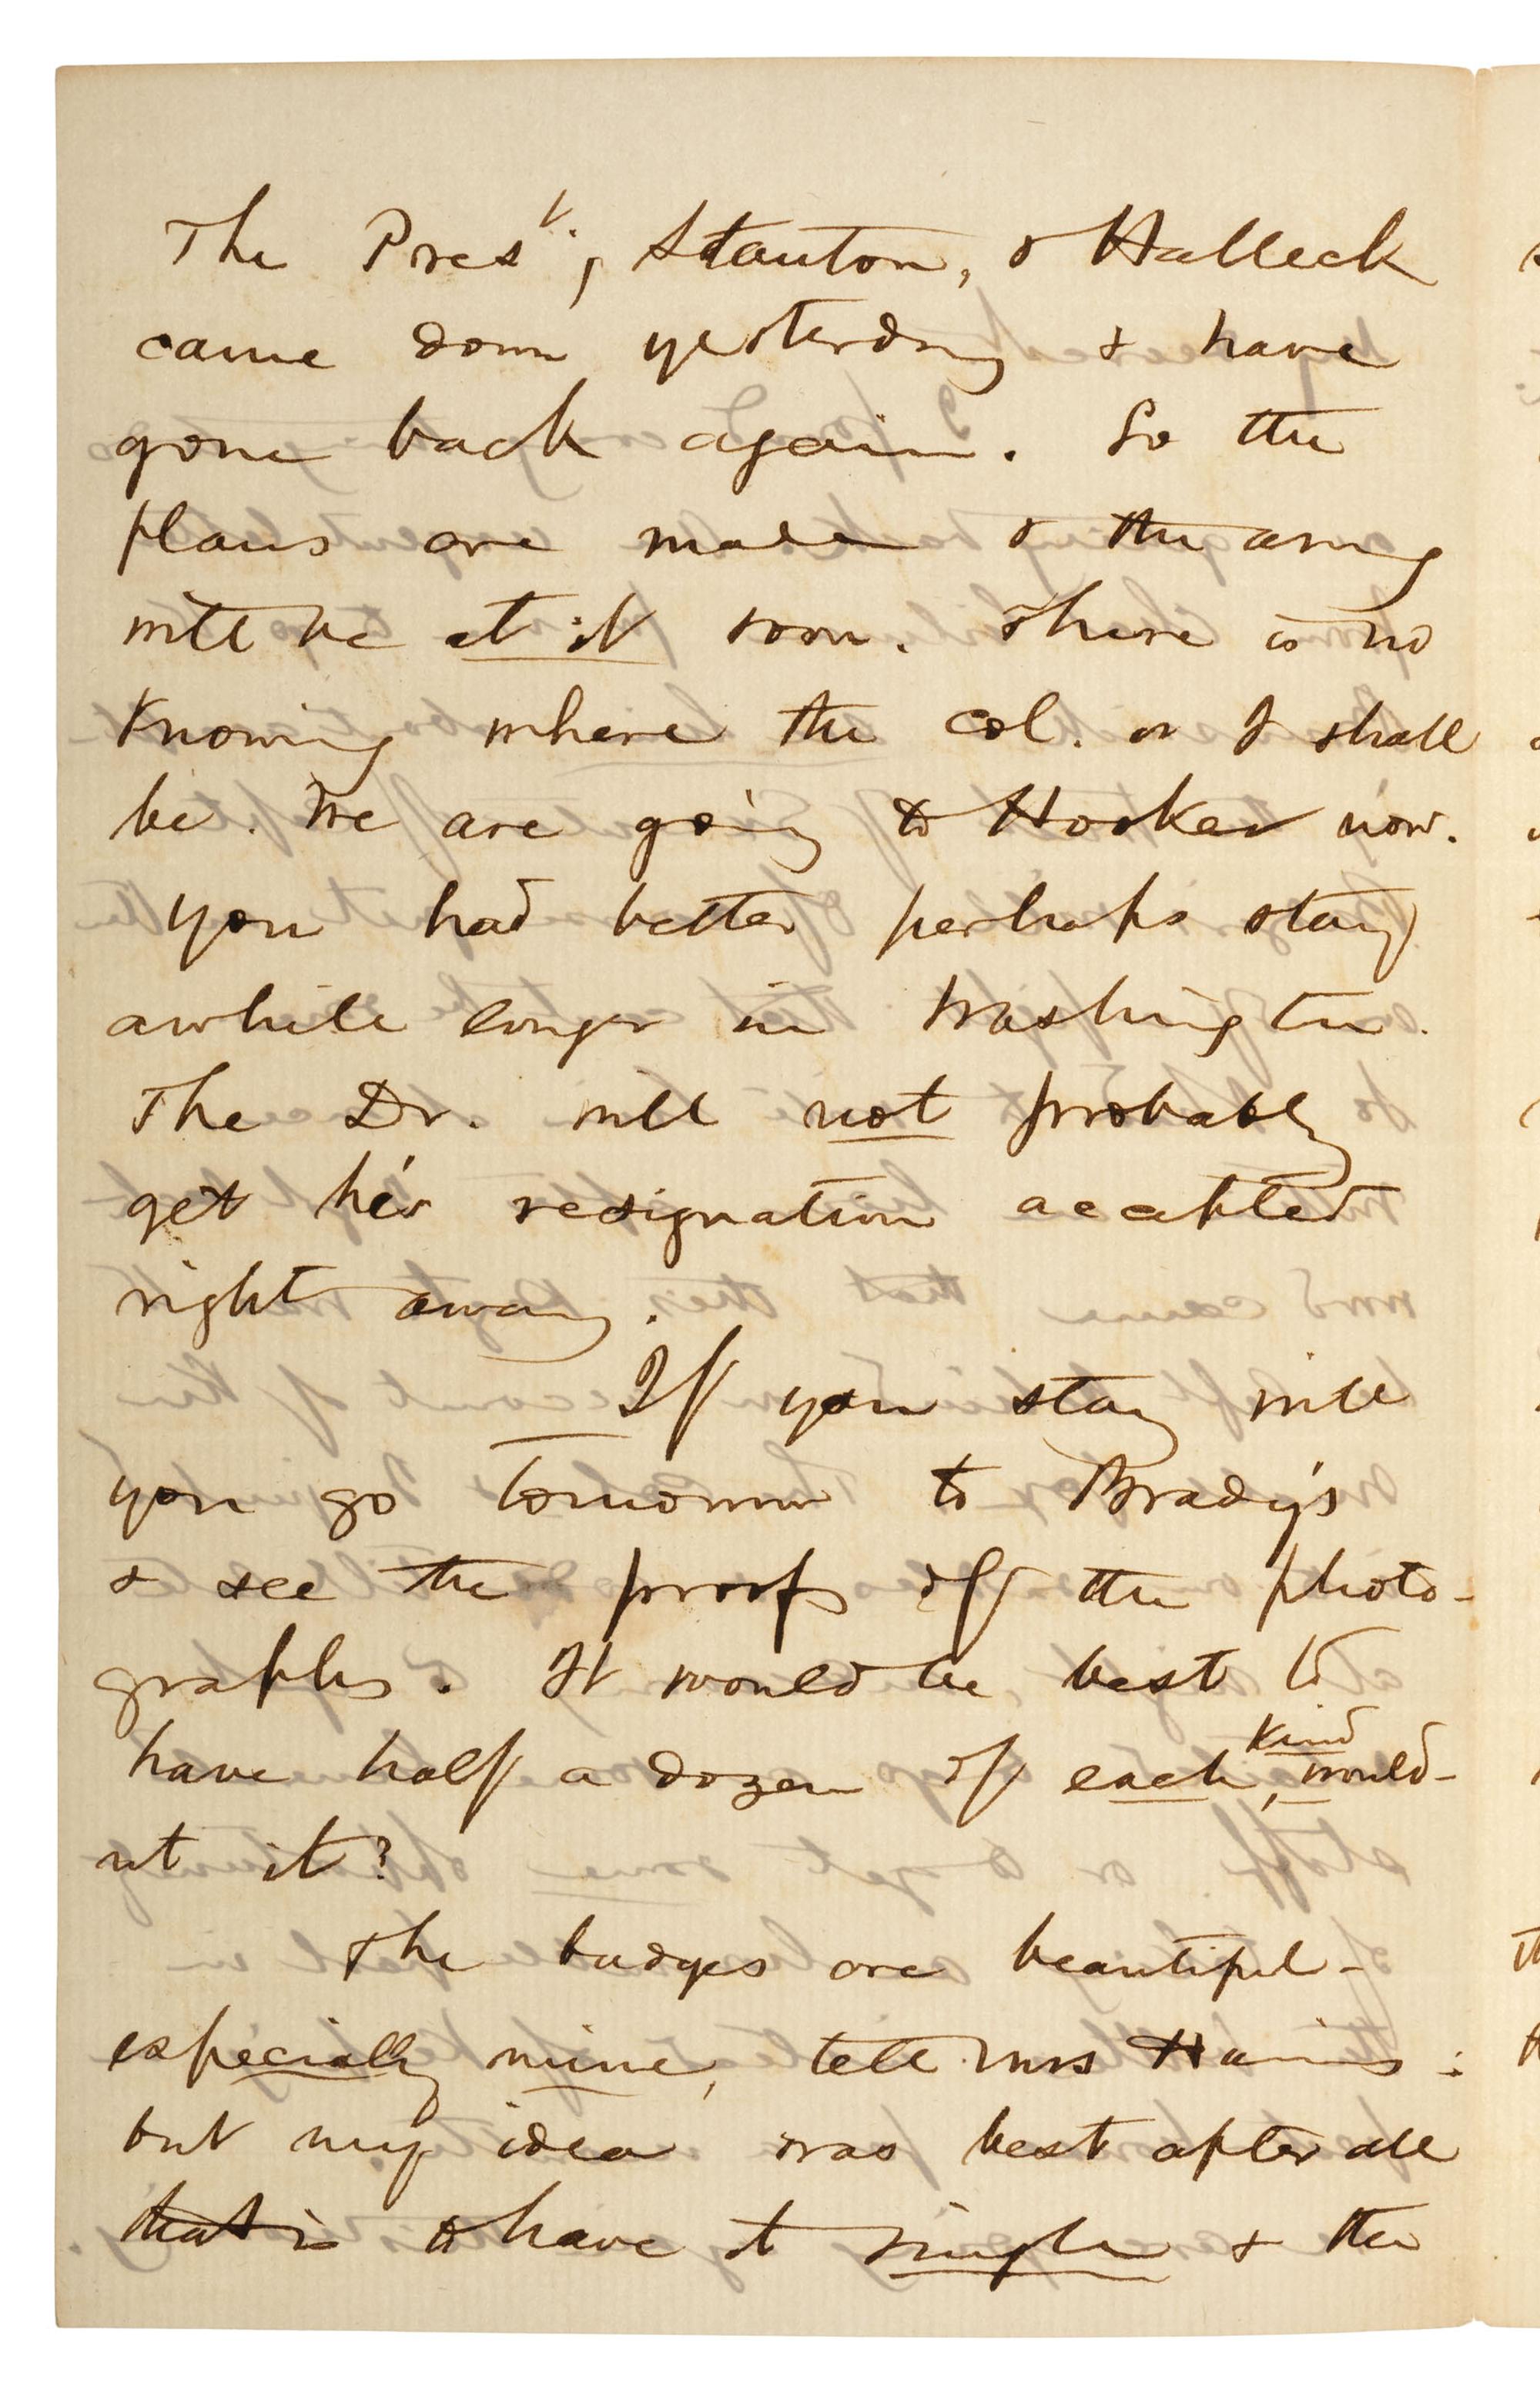 The Pres^t, Stanton, & Halleck
came down yesterday & have
gone back again. So the
plans are made & the army
will be at it soon. There is no
knowing where the Col. or I shall
be. We are going to Hooker now.
You had better perhaps stay
awhile longer in Washington.
The Dr. will not probably
get his resignation accepted
right away.
If you stay will
you go tomorrow to Brady's
& see the proofs of the photo-
graphs. It would be best to
kind
have half a dozen of each, would-
nt it?
The badges are beautiful -
especially mine, tell Mrs Harris:
but my idea was best after all
that is to have it single & the